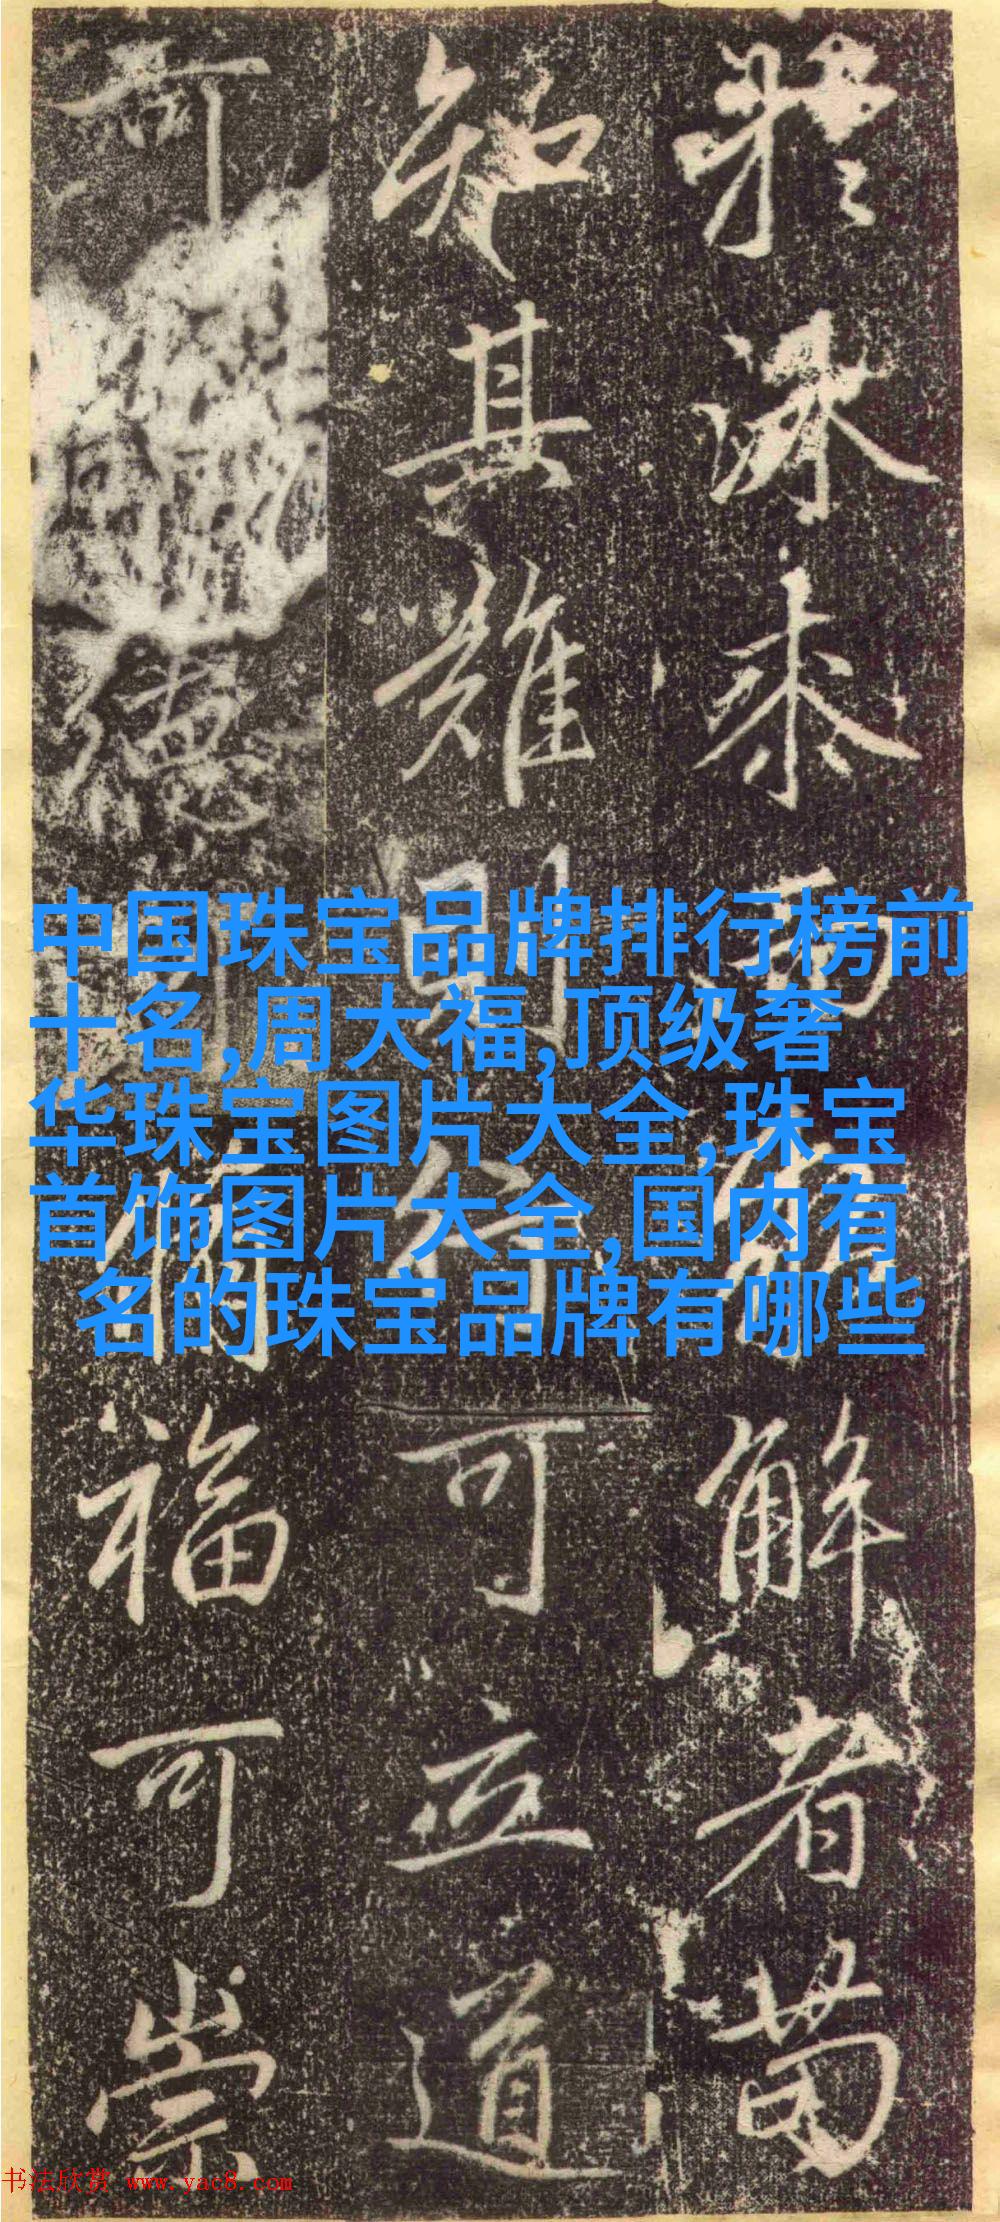 深求解者
知其難則行可立道
可德福可崇
中国珠宝品牌排行榜前
十名,周大福,顶级奢
华珠宝图片大全,珠宝
首饰图片大全,国内有
名的珠宝品牌有哪些
书法欣赏 www.yac8.com